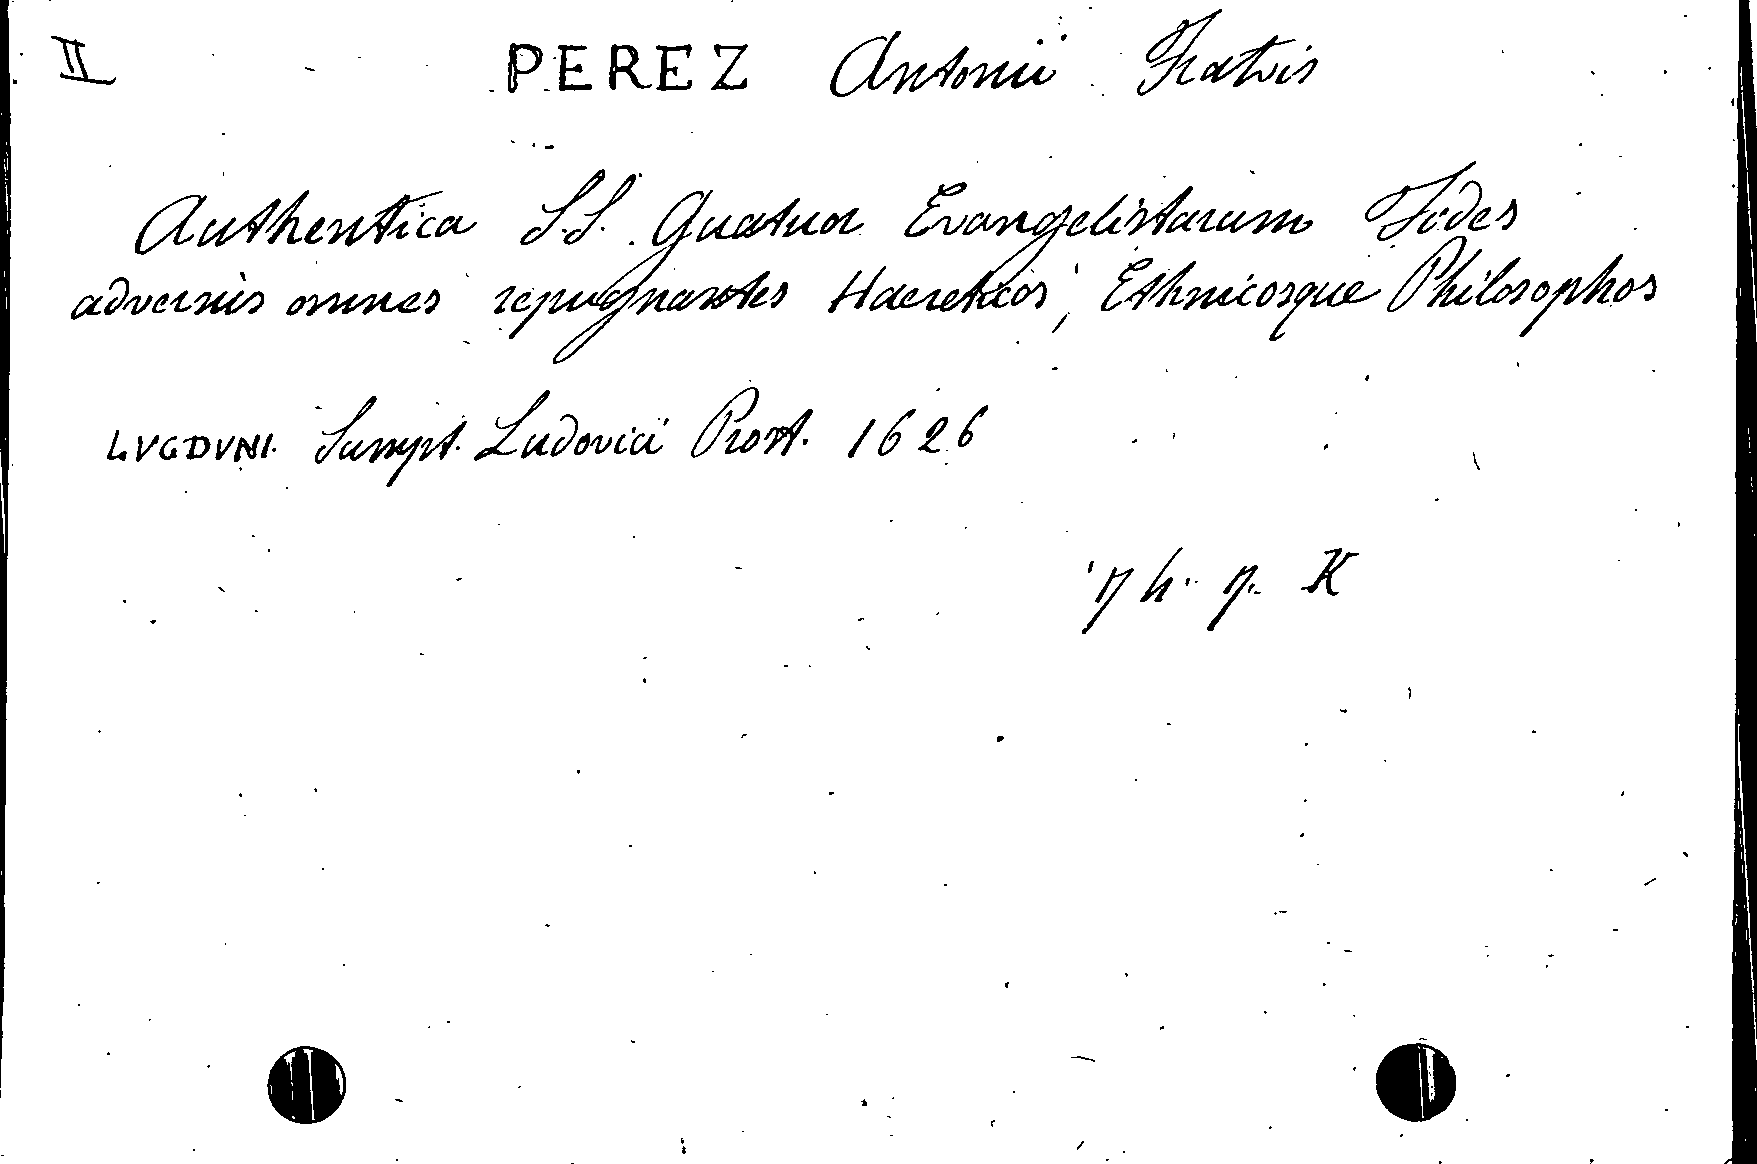 II PEREZ Antonii Fratris
Authentica S.S. Quatuor Evangelistarum Fides
adversus omnes repugnantes Haereticos, Ethnicosque Philosophos
LVGDVNI. Sumpt. Ludovici Prost. 1626
K